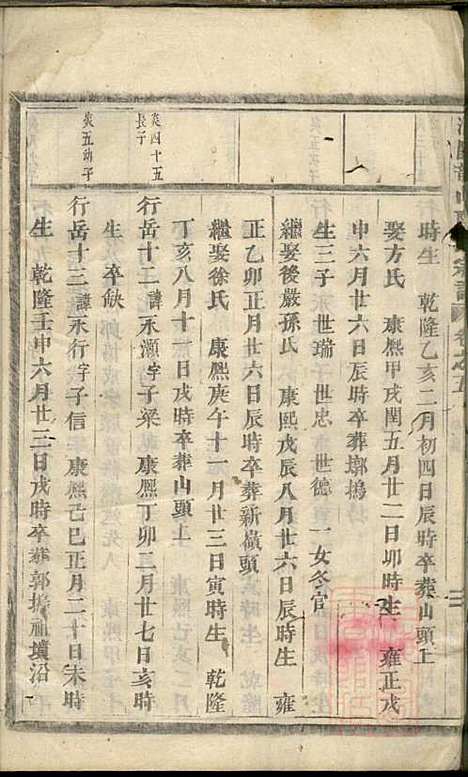 宗譜 卷之五
時生 乾隆乙亥二月初四日辰時卒葬山頭上
娶方氏 康熙甲戌閏五月廿二日卯時生 雍正戊
申六月廿六日辰時卒葬塢
生三子 永世瑞 子世忠 世德 一女冬官
繼娶後嚴孫氏 康熙戊辰八月廿六日辰時生 雍
正乙卯正月廿六日辰時卒葬新嶺頭
繼娶徐氏 康熙庚午十一月廿三日寅時生 乾隆
丁亥八月十一日戌時卒葬山頭上
英四十五
長子
行岳十二 諱永灝 字子梁 康熙丁卯二月廿七日亥時
生 卒缺
英五幼子
行岳十三 諱永行 字子信 康熙己巳正月二十日未時
生 乾隆壬申六月廿二日戌時卒葬郭塢祖墳沿